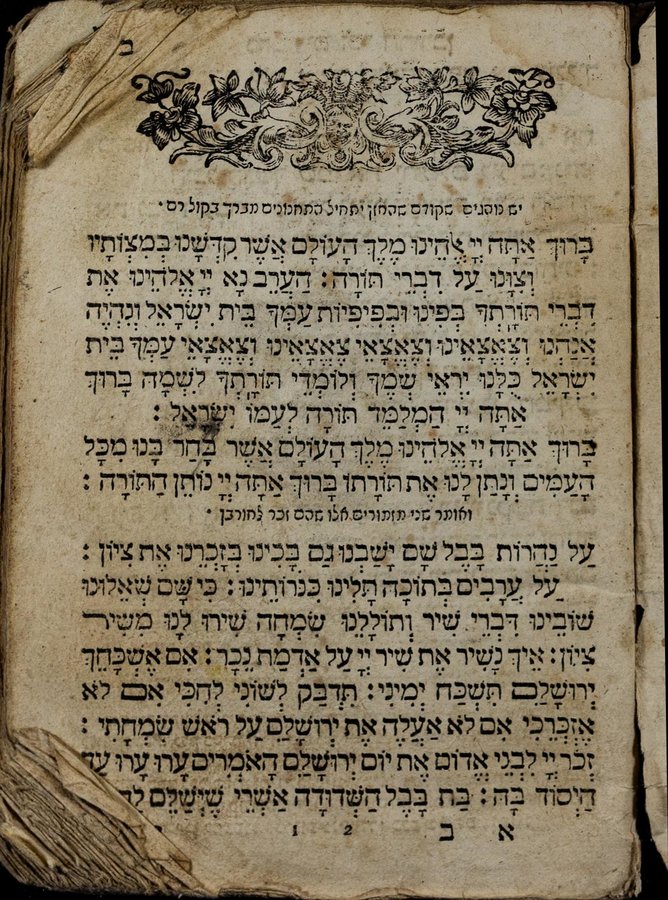 ב
יש נוהגים שקודם שהחזן יתחיל התחנונים מברך בקול רם •
בָּרוּךְ אַתָּה יְיָ אֱלֹהֵינוּ מֶלֶךְ הָעוֹלָם אֲשֶׁר קִדְּשָׁנוּ בְּמִצְוֹתָיו
וְצִוָּנוּ עַל דִּבְרֵי תוֹרָה : הַעֲרֵב נָא יְיָ אֱלֹהֵינוּ אֶת
דִּבְרֵי תוֹרָתְךָ בְּפִינוּ וּבְפִיפִיוֹת עַמְּךָ בֵּית יִשְׂרָאֵל וְנִהְיֶה
אֲנַחְנוּ וְצֶאֱצָאֵינוּ וְצֶאֱצָאֵי צֶאֱצָאֵינוּ וְצֶאֱצָאֵי עַמְּךָ בֵּית
יִשְׂרָאֵל כֻּלָּנוּ יִרְאֵי שְׁמֶךָ וְלוֹמְדֵי תוֹרָתֶךָ לִשְׁמָהּ בָּרוּךְ
אַתָּה יְיָ הַמְלַמֵּד תּוֹרָה לְעַמּוֹ יִשְׂרָאֵל :
בָּרוּךְ אַתָּה יְיָ אֱלֹהֵינוּ מֶלֶךְ הָעוֹלָם אֲשֶׁר בָּחַר בָּנוּ מִכָּל
הָעַמִּים וְנָתַן לָנוּ אֶת תּוֹרָתוֹ בָּרוּךְ אַתָּה יְיָ נוֹתֵן הַתּוֹרָה :
ואומר שני מזמורים אלו שהם זכר לחורבן •
עַל נַהֲרוֹת בָּבֶל שָׁם יָשַׁבְנוּ גַם בָּכִינוּ בְּזָכְרֵנוּ אֶת צִיּוֹן :
עַל עֲרָבִים בְּתוֹכָהּ תָּלִינוּ כִּנּוֹרוֹתֵינוּ : כִּי שָׁם שְׁאֵלוּנוּ
שׁוֹבֵינוּ דִּבְרֵי שִׁיר וְתוֹלָלֵנוּ שִׂמְחָה שִׁירוּ לָנוּ מִשִּׁיר
צִיּוֹן : אֵיךְ נָשִׁיר אֶת שִׁיר יְיָ עַל אַדְמַת נֵכָר : אִם אֶשְׁכָּחֵךְ
יְרוּשָׁלִַם תִּשְׁכַּח יְמִינִי : תִּדְבַּק לְשׁוֹנִי לְחִכִּי אִם לֹא
אֶזְכְּרֵכִי אִם לֹא אַעֲלֶה אֶת יְרוּשָׁלִַם עַל רֹאשׁ שִׂמְחָתִי :
זְכֹר יְיָ לִבְנֵי אֱדוֹם אֶת יוֹם יְרוּשָׁלִַם הָאֹמְרִים עָרוּ עָרוּ עַד
הַיְסוֹד בָּהּ : בַּת בָּבֶל הַשְּׁדוּדָה אַשְׁרֵי שֶׁיְשַׁלֵּם
1 2 ב א